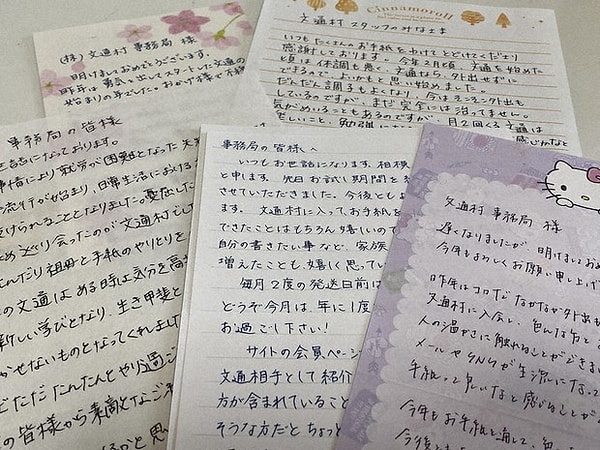 (株)文通村 事務局 様
明けましておめでとうございます。
昨年は勇気を出してスタートした文通の
始まりの年でした。おかげ様で
Cinnamoroll
文通村 スタッフのみなさま
いつもたくさんのお手紙をわけてとどけてくださり
感謝しております。今年2月頃、文通を始めた
頃は体調も悪く、文通なら、外出せずに
できるので、よいかもと思い始めました。
だんだん調子もよくなり、今はランランク外出も
しているのですが、まだ完全には治ってません。
気がめいることもあるのですが、月2回くる文通は
事務局の皆様
話になっております。
事情により就労が困難となった
流行が始まり、日常生活における
られることとなりました。
めぐり会ったのが文通村でし
んだり祖母と手紙のやりとりを
の文通は、ある時は気分を高
新しい学びとなり、生き甲斐と
かせないものとなってくれました
ただただ たんたんとやり過ご
の皆様から素敵なご
かと思
事務局の皆様へ
いつもお世話になります。相模
と申します。先日お試し期間を
させていただきました。今後ともよ
ます。文通村に入ってお手紙を
できたことはもちろん嬉しいので
自分の書きたい事など、家族
増えたことも、嬉しく思ってい
毎月2度の発送日前は
どうぞ今月は、年に1度
お過ごし下さい!
サイトの会員ページ
文通相手として紹介
方が含まれていること
そうな方だとちょっと
文通村 事務局 様
遅くなりましたが、明けましておめ
今年もよろしくお願い申し上げ
昨年はコロナでなかなか外出
文通村に入会し、色んな方と
人の温かさに触れることができま
メールやSNSが主流になって
手紙って良いなと感じることが
今年もお手紙を通して、色
今後とも